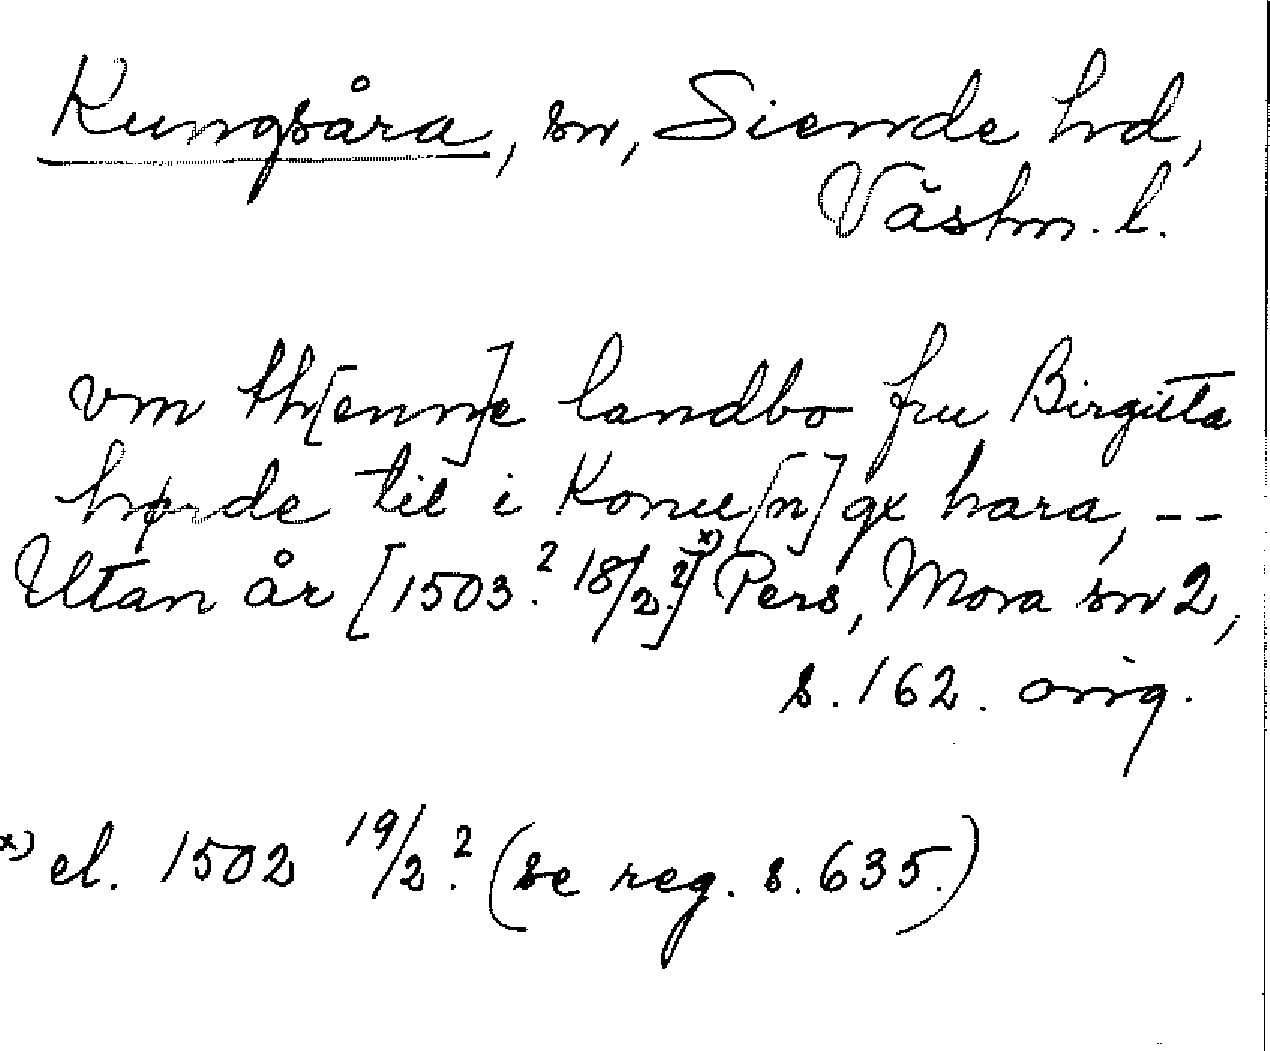 Kungsåra, sn, Siende hd,
Västm. l.
vm th[enn]e landbo fru Birgitta
hørde til i Konu[n]gx hara, --
Utan år [1503? 18/2?]x) Pers, Mora sn 2,
s. 162. orig.
x) el. 1502 19/2? (se reg. s. 635.)